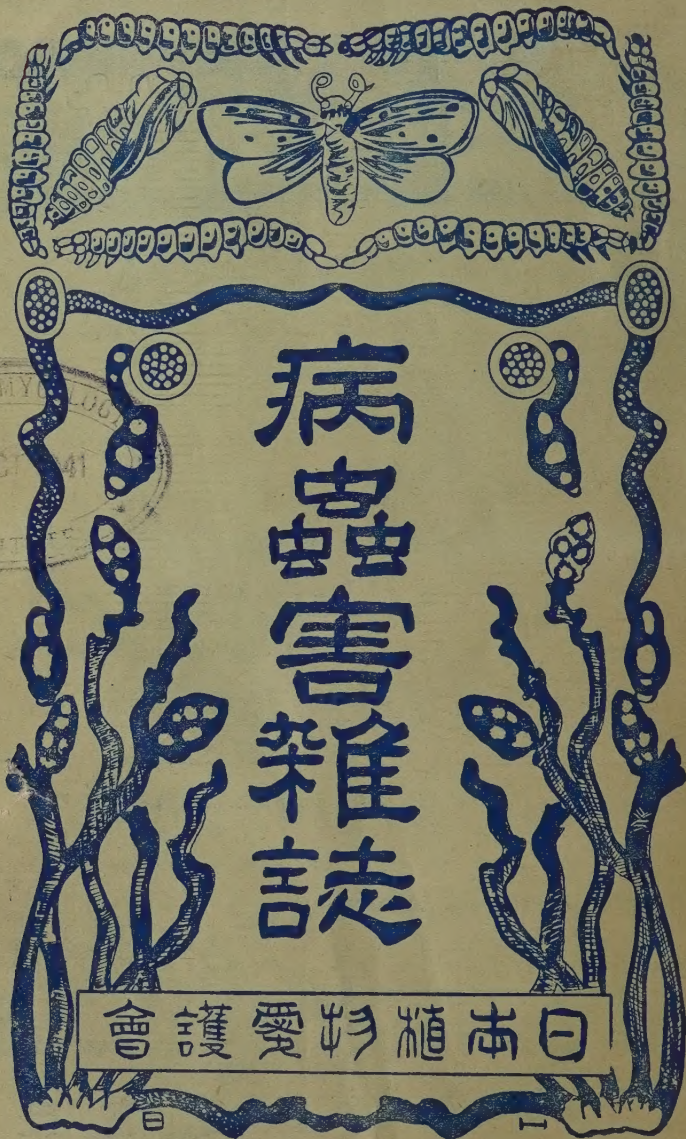 病蟲害雜誌
日本植物愛護會